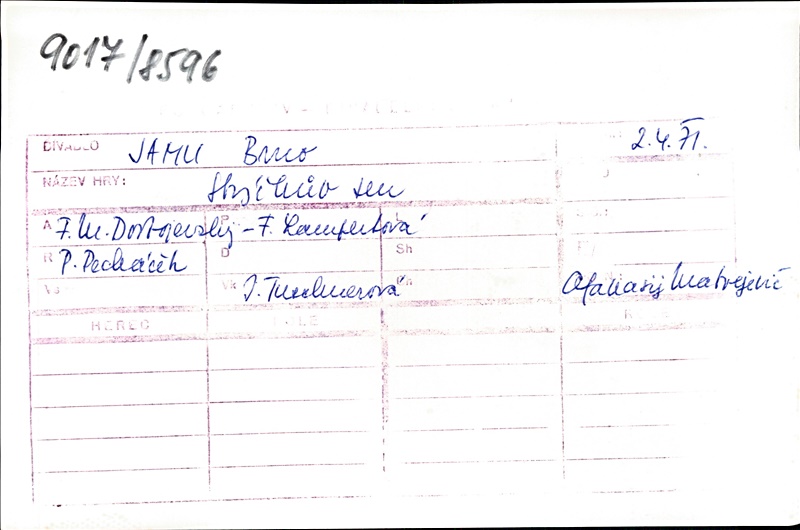 9017/8596
DIVADLO JAMU Brno 2.4.71.
NÁZEV HRY: Strýčkův sen
A F.M. Dostojevskij - F. Kampertová
R P. Pecháček D Sh
Vk J. Tuchmerová Afanasij Matvějevič
HEREC